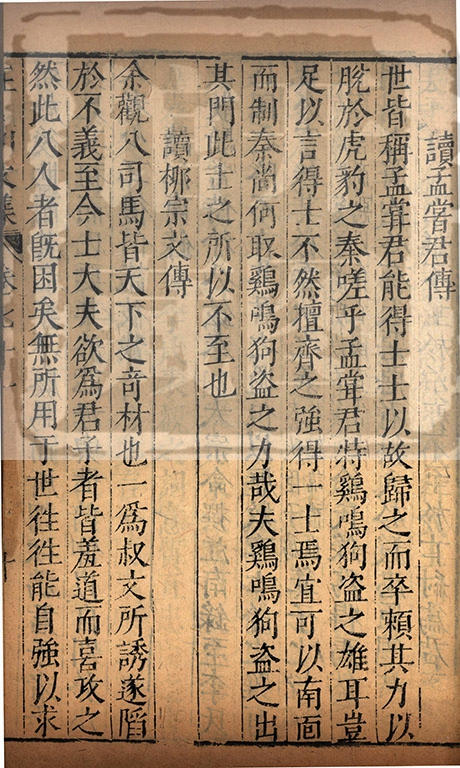 讀孟嘗君傳
世皆稱孟嘗君能得士士以故歸之而卒賴其力以
脫於虎豹之秦嗟乎孟嘗君特鷄鳴狗盗之雄耳豈
足以言得士不然擅齊之強得一士焉宜可以南面
而制秦尚何取鷄鳴狗盗之力哉夫鷄鳴狗盗之出
其門此士之所以不至也
讀柳宗文傳
余觀八司馬皆天下之竒材也一爲叔文所誘遂䧟
於不義至今士大夫欲爲君子者皆羞道而喜攻之
然此八人者旣困矣無所用于世徃徃能自強以求
文集 卷七十一